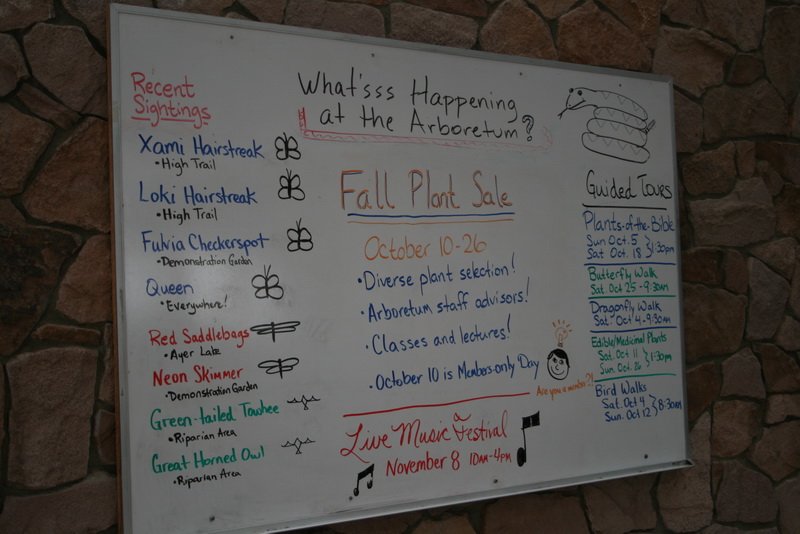 Recent
Sightings
Xami Hairstreak
•High Trail
Loki Hairstreak
•High Trail
Fulvia Checkerspot
•Demonstration Garden
Queen
•Everywhere!
Red Saddlebags
•Ayer Lake
Neon Skimmer
•Demonstration Garden
Green-tailed Towhee
•Riparian Area
Great Horned Owl
•Riparian Area
What'sss Happening
at the Arboretum?
Fall Plant Sale
October 10-26
•Diverse plant selection!
•Arboretum staff advisors!
•Classes and lectures!
•October 10 is Members-only Day
Are you a member?!
Live Music Festival
November 8 10AM-4PM
Guided Tours
Plants-of-the-Bible
Sun Oct. 5
Sat Oct. 18 }1:30pm
Butterfly Walk
Sat Oct 25 - 9:30AM
Dragonfly Walk
Sat. Oct 4 - 9:30AM
Edible/Medicinal Plants
Sat. Oct 11
Sun. Oct 26 }1:30pm
Bird Walks
Sat. Oct 4
Sun. Oct 12 }8:30AM